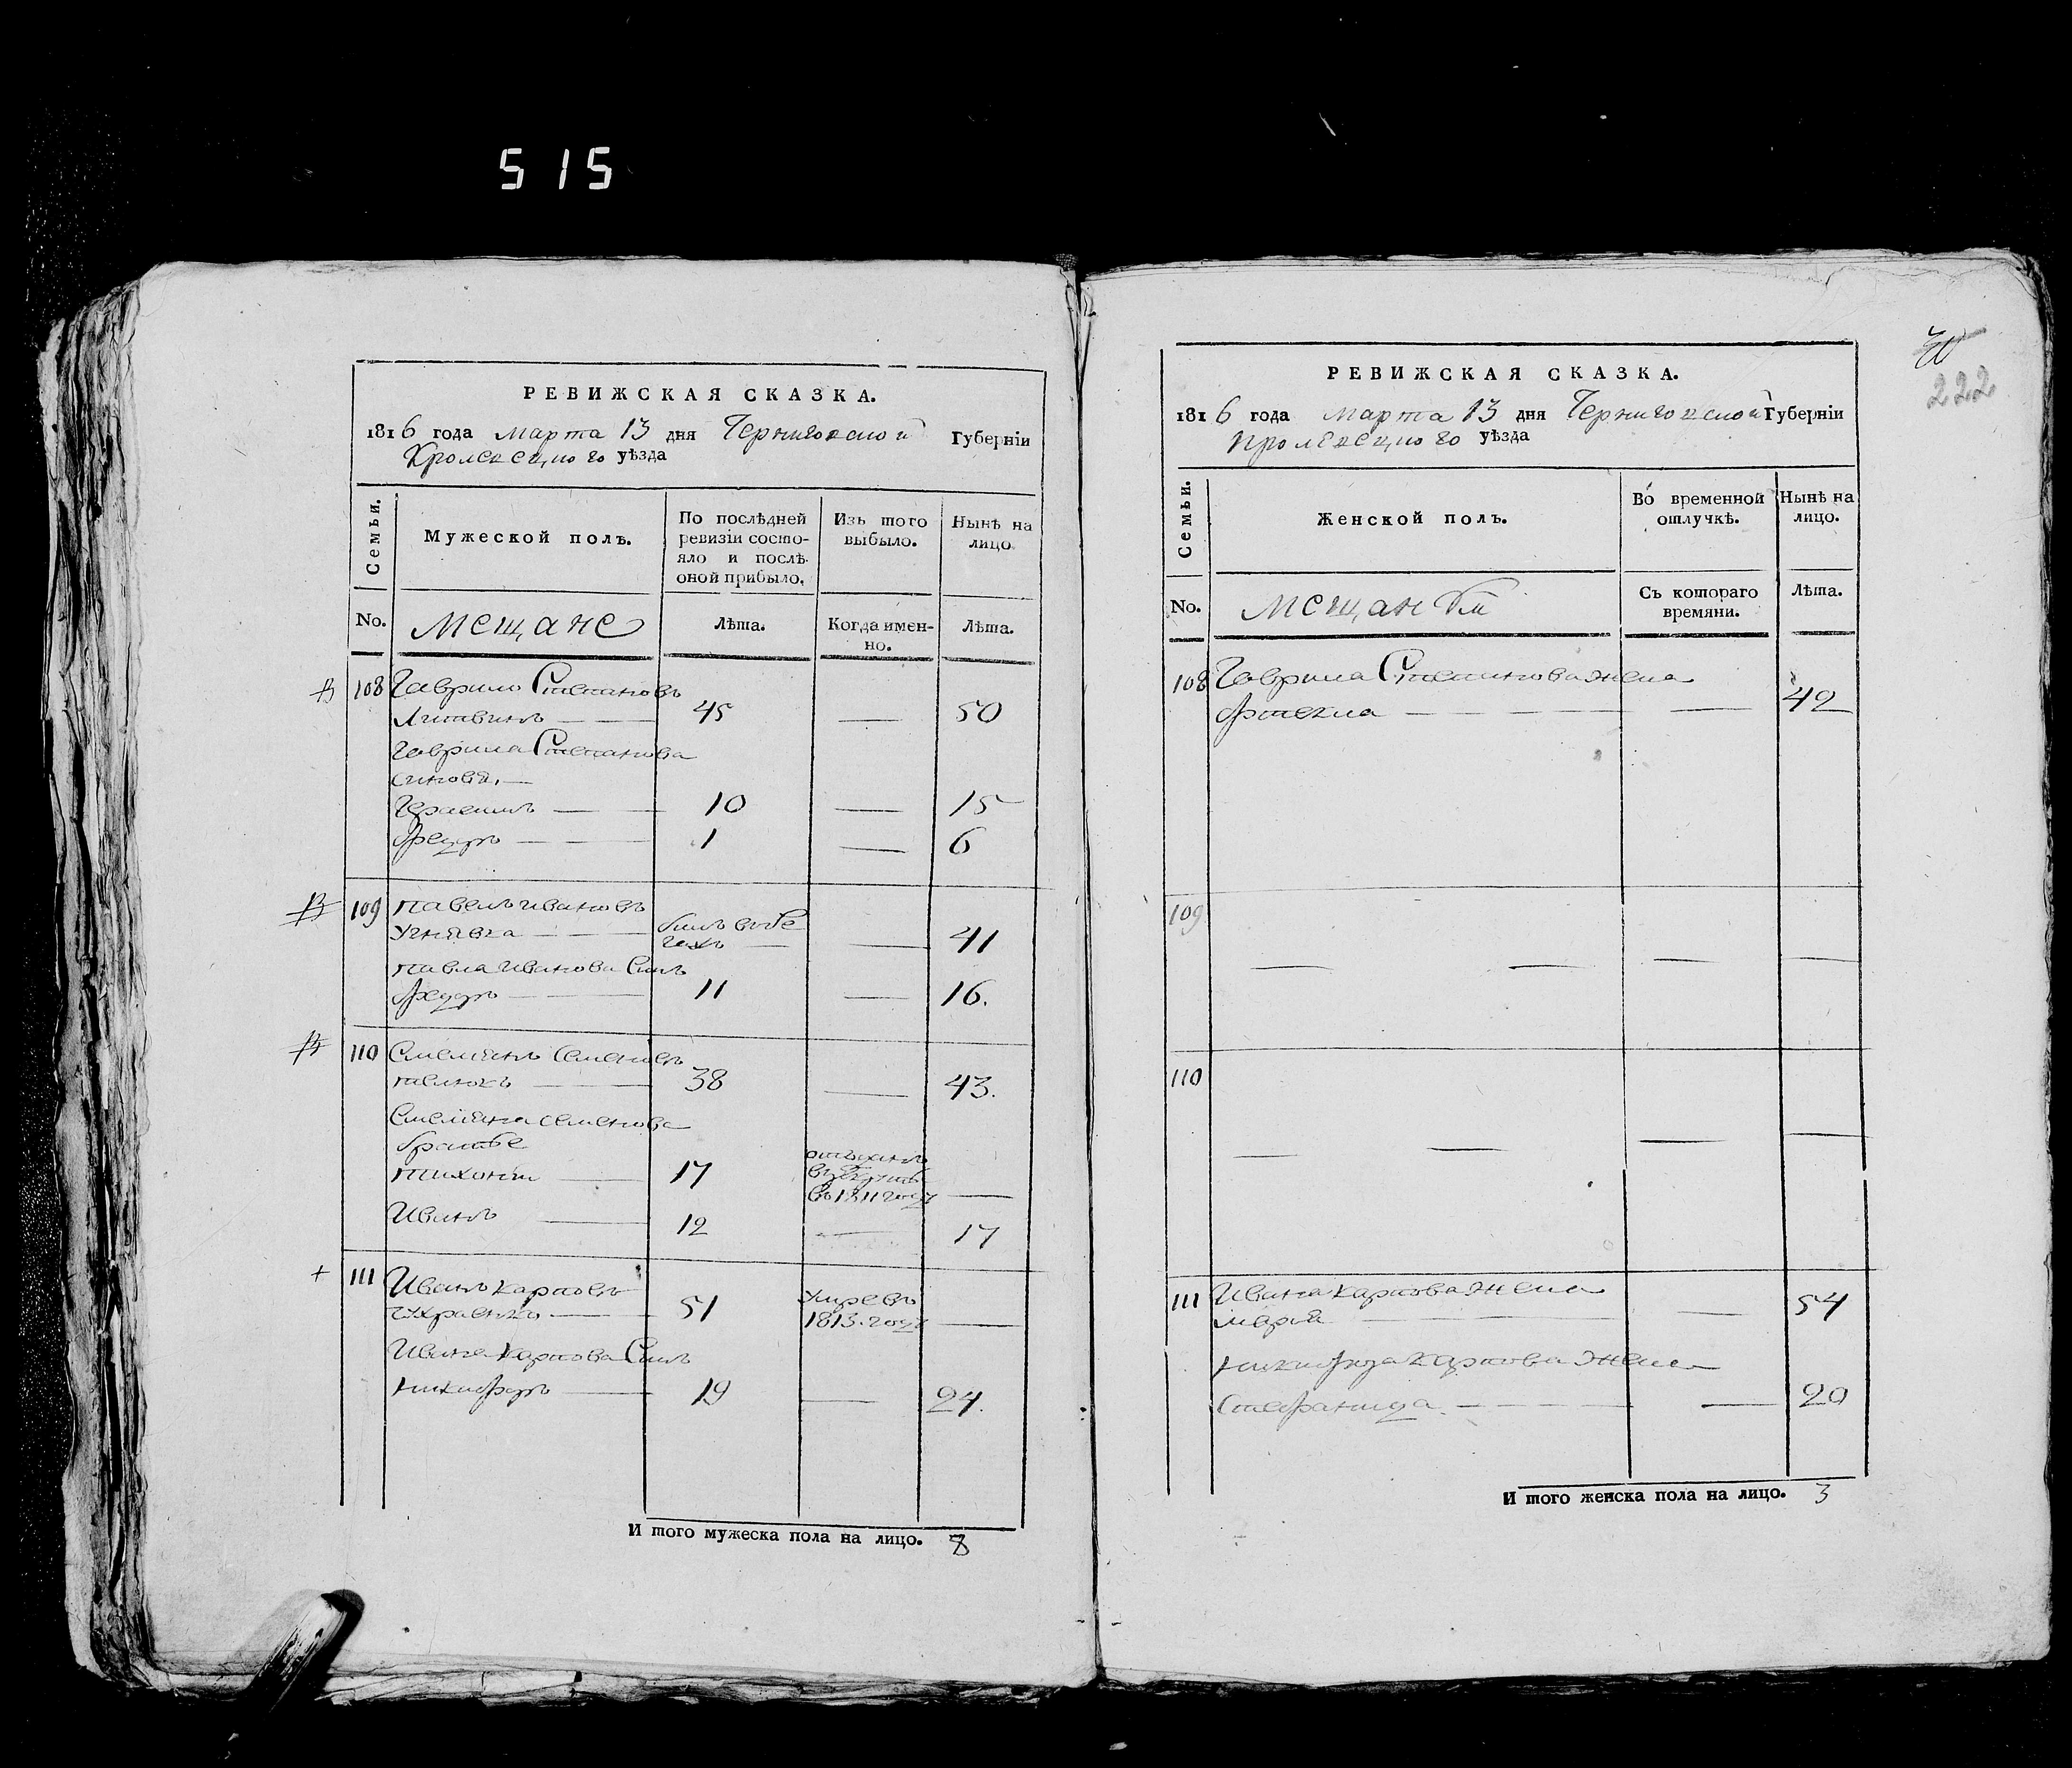 515
РЕВИЖСКАЯ СКАЗКА.
1816 года марта 13 дня Черниговской Губерніи
Кролевецкого уѣзда
Семьи.
Мужеской полъ.
По послѣдней ревизіи состояло и послѣ оной прибыло.
Изъ того выбыло.
Нынѣ на лицо.
No.
мещане
Лѣта.
Когда именно.
Лѣта.
108 Гаврило Степановъ
Литвинъ — 45 — 50
Гаврила Степанова
синовя, —
Герасимъ — 10 — 15
Федоръ — 1 — 6
109 павелъ ивановъ
былъ въ бе
гахъ — — 41
павла иванова Синъ
Федоръ — 11 — 16.
110 Емелянъ Семеновъ
38 — 43.
Емеляна семенова
братье
тихонъ — 17
въ 1811 году —
Иванъ — 12 — 17
111 Иванъ карповъ
51 умре въ
1813. году —
Ивана карпова Синъ
никифоръ — 19 — 24.
И того мужеска пола на лицо. 8
222
РЕВИЖСКАЯ СКАЗКА.
1816 года марта 13 дня Черниговской Губерніи
Кролевецкого уѣзда
Семьи.
Женской полъ.
Во временной отлучкѣ.
Нынѣ на лицо.
No.
Съ котораго времяни.
Лѣта.
108 Гаврила Степанова жена
Фтекла — — 42
109
— — — —
110
— — — —
111 Ивана карпова жена
марья — — 54
никифора карпова жена
Стефанида — — 20
И того женска пола на лицо. 3